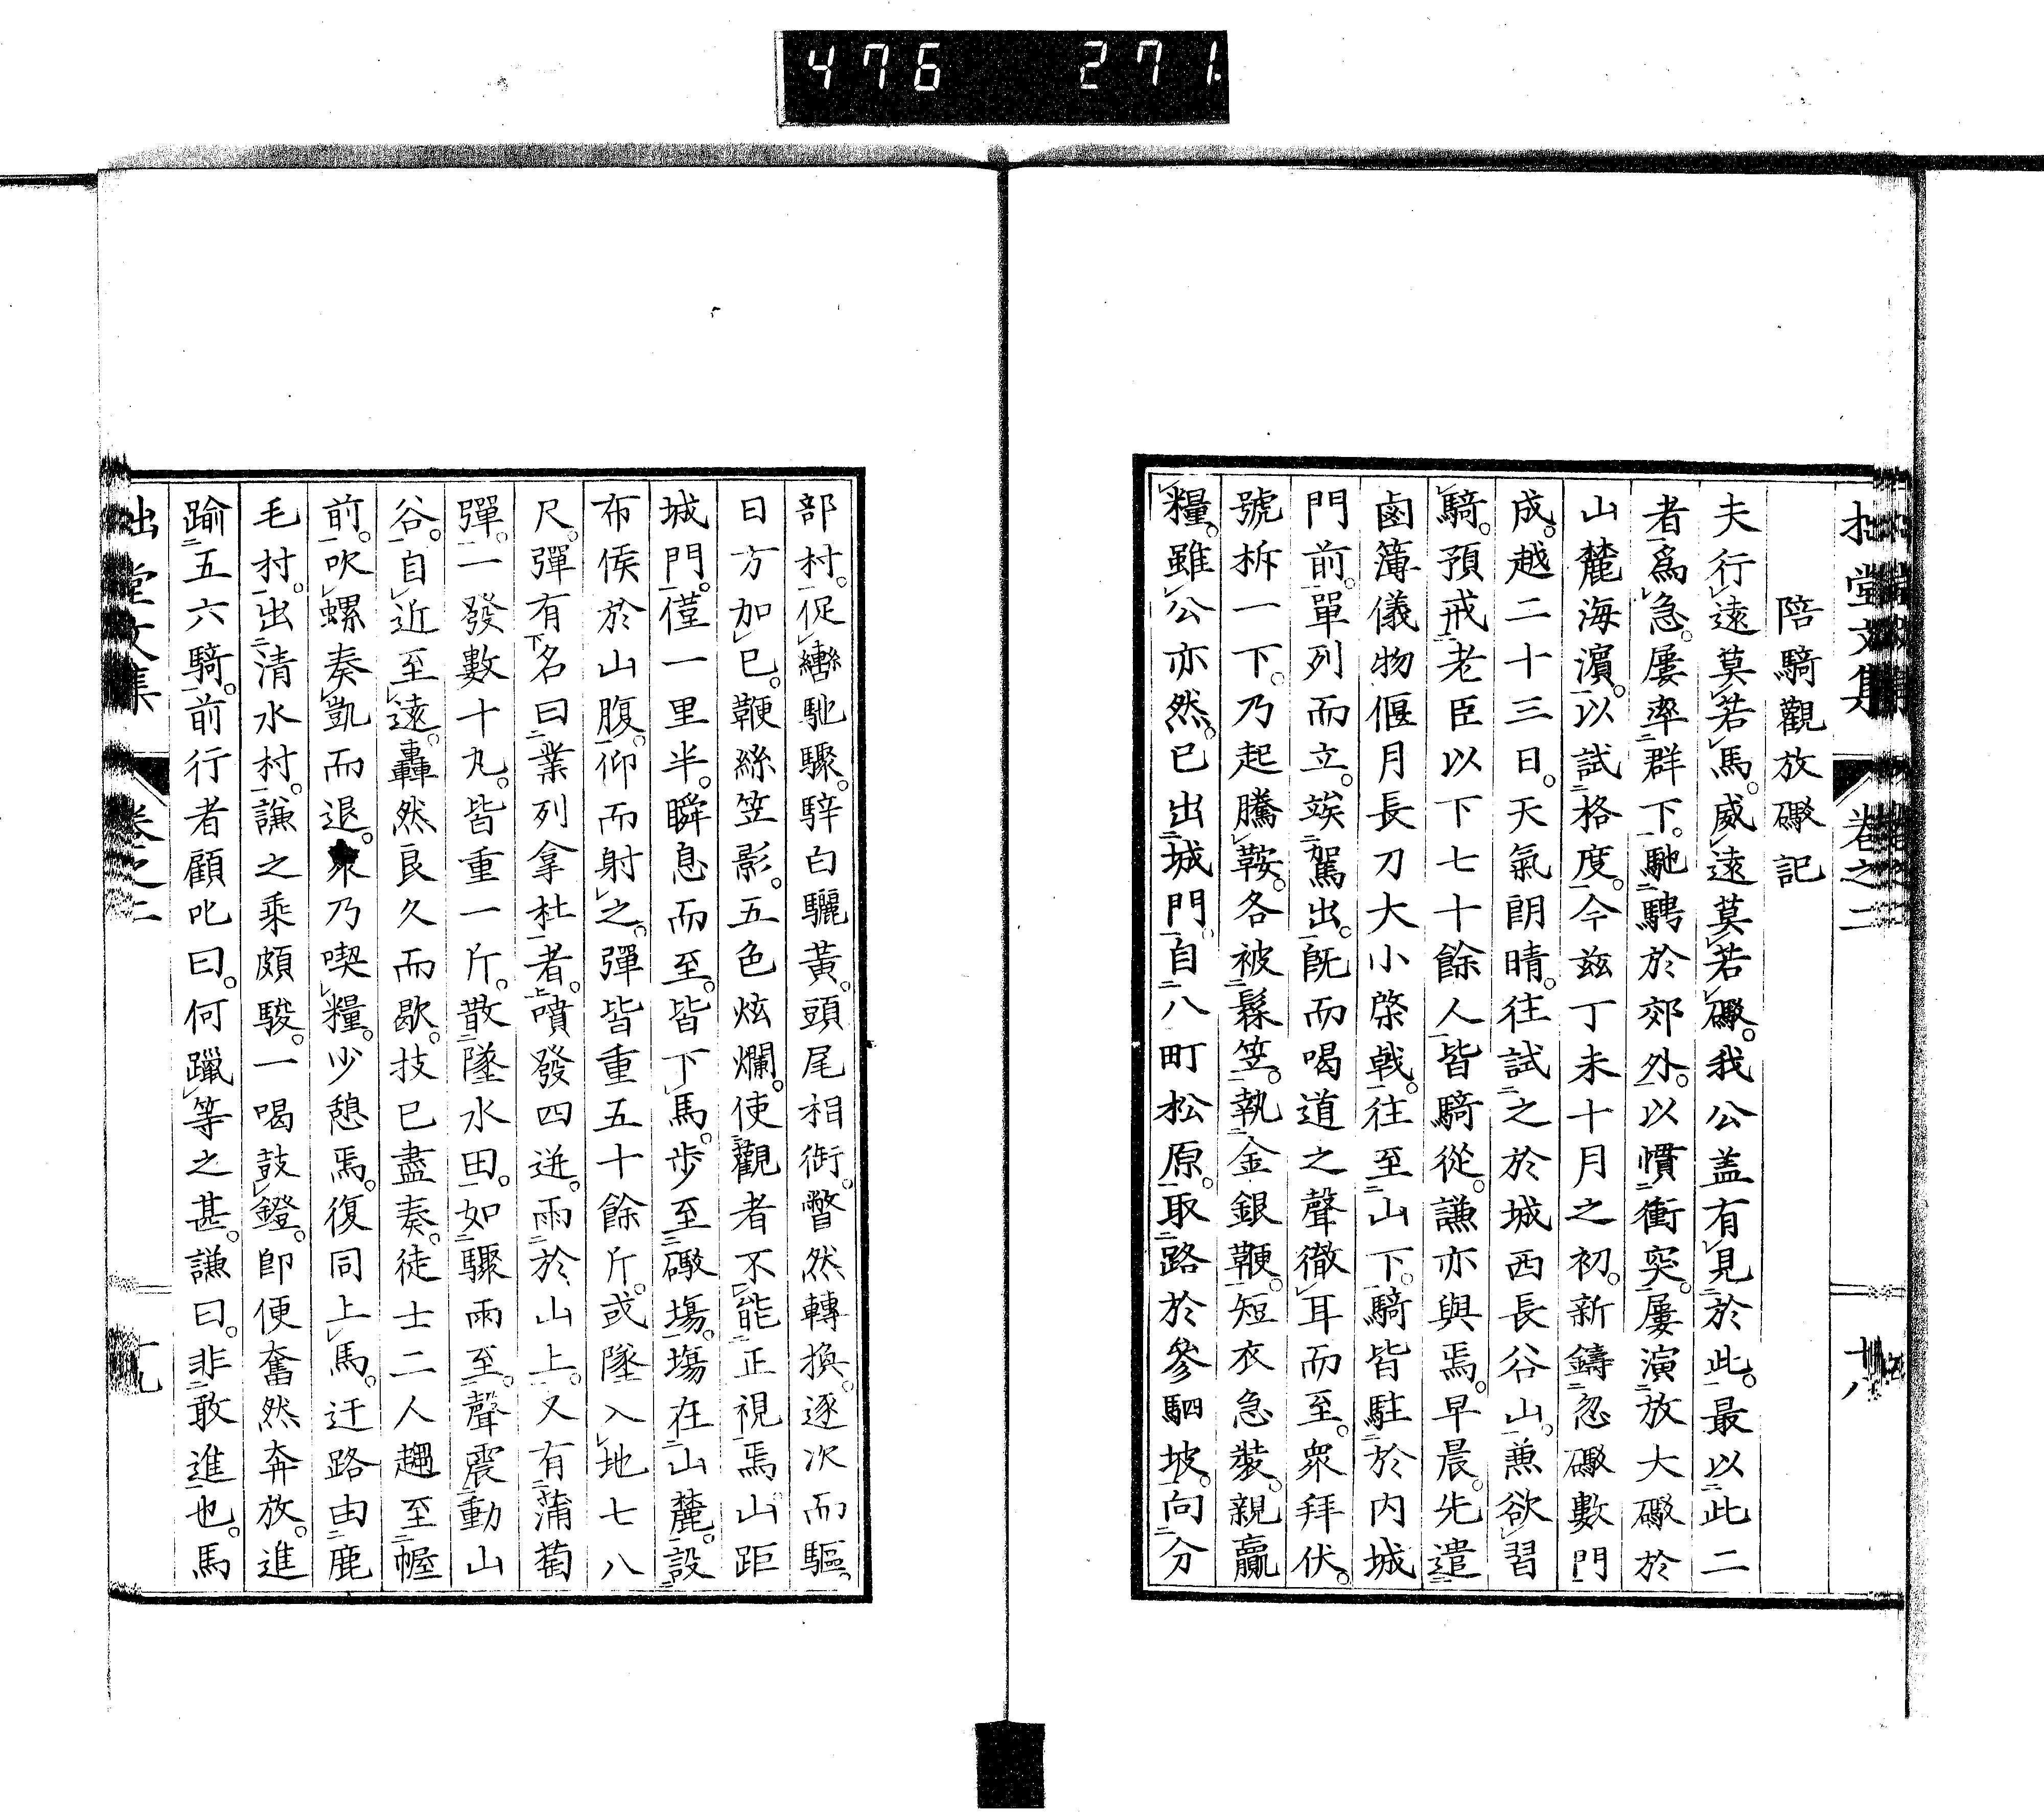 476 271
拙堂文集 卷之二 十八
陪騎觀放礮記
夫行遠莫若馬。威遠莫若礮。我公盖有見於此。最以此二
者爲急。屢率群下。馳騁於郊外。以慣衝突。屢演放大礮於
山麓海濵。以試格度。今玆丁未十月之初。新鑄忽礮數門
成。越二十三日。天氣朗晴。往試之於城西長谷山。兼欲習
騎。預戒老臣以下七十餘人皆騎從。謙亦與焉。早晨。先遣
鹵簿儀物偃月長刀大小棨戟。往至山下。騎皆駐於内城
門前。單列而立。竢駕出。既而喝道之聲徹耳而至。衆拜伏。
號柝一下。乃起騰鞍。各被鬃笠。執金銀鞭。短衣急裝。親贏
糧。雖公亦然。已出城門。自八町松原。取路於參駟坡。向分
部村。促轡馳驟。騂白驪黃。頭尾相銜。瞥然轉換。逐次而驅。
日方加巳。鞭絲笠影。五色炫爛。使觀者不能正視焉。山距
城門。僅一里半。瞬息而至。皆下馬。步至礮塲。塲在山麓。設
布侯於山腹。仰而射之。彈皆重五十餘斤。或墜入地七八
尺。彈有名曰業列拿杜者。噴發四迸。雨於山上。又有蒲萄
彈。一發數十丸。皆重一斤。散墜水田。如驟雨至。聲震動山
谷。自近至遠。轟然良久而歇。技已盡奏。徒士二人趨至幄
前。吹螺奏凱而退。衆乃喫糧。少憩焉。復同上馬。迂路由鹿
毛村。出清水村。謙之乘頗駿。一喝鼓鐙。即便奮然奔放。進
踰五六騎。前行者顧叱曰。何躐等之甚。謙曰。非敢進也。馬
拙堂文集 卷之二 十九